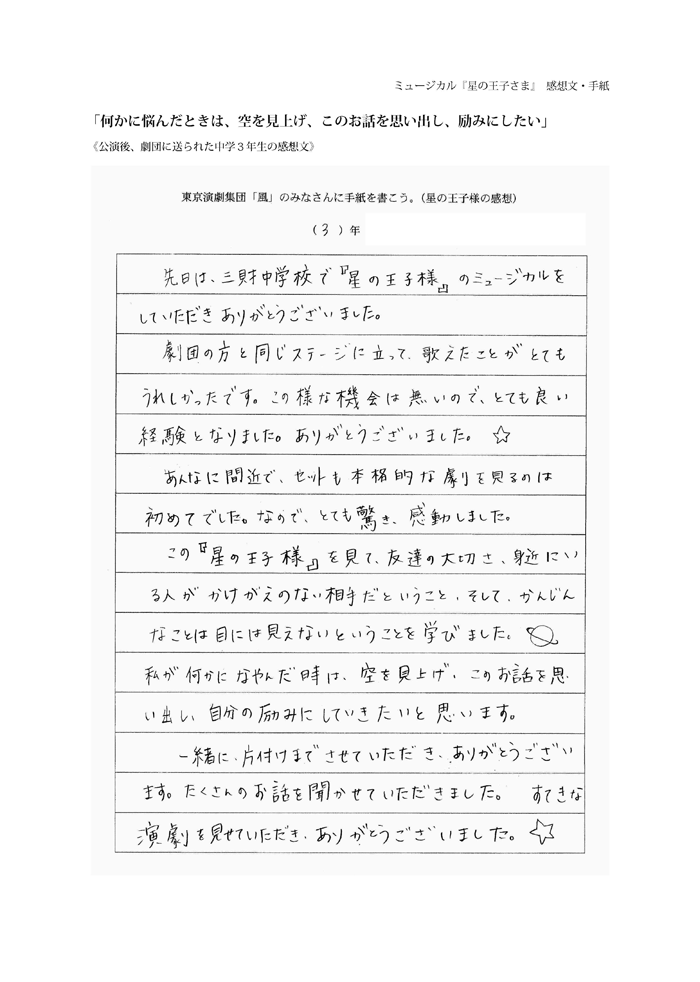 ミュージカル『星の王子さま』 感想文・手紙
「何かに悩んだときは、空を見上げ、このお話を思い出し、励みにしたい」
《公演後、劇団に送られた中学３年生の感想文》
東京演劇集団「風」のみなさんに手紙を書こう。（星の王子様の感想）
（ 3 ）年
先日は、三財中学校で『星の王子様』のミュージカルを
していただきありがとうございました。
劇団の方と同じステージに立って、歌えたことがとても
うれしかったです。この様な機会は無いので、とても良い
経験となりました。ありがとうございました。☆
あんなに間近で、セットも本格的な劇を見るのは
初めてでした。なので、とても驚き、感動しました。
この『星の王子様』を見て、友達の大切さ、身近にい
る人がかけがえのない相手だということ、そして、かんじん
なことは目には見えないということを学びました。
私が何かになやんだ時は、空を見上げ、このお話を思
い出し、自分の励みにしていきたいと思います。
一緒に、片付けまでさせていただき、ありがとうござい
ます。たくさんのお話を聞かせていただきました。 すてきな
演劇を見せていただき、ありがとうございました。☆